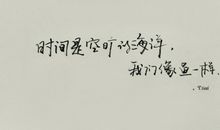 时间是空旷的海洋，
我们像鱼一样.